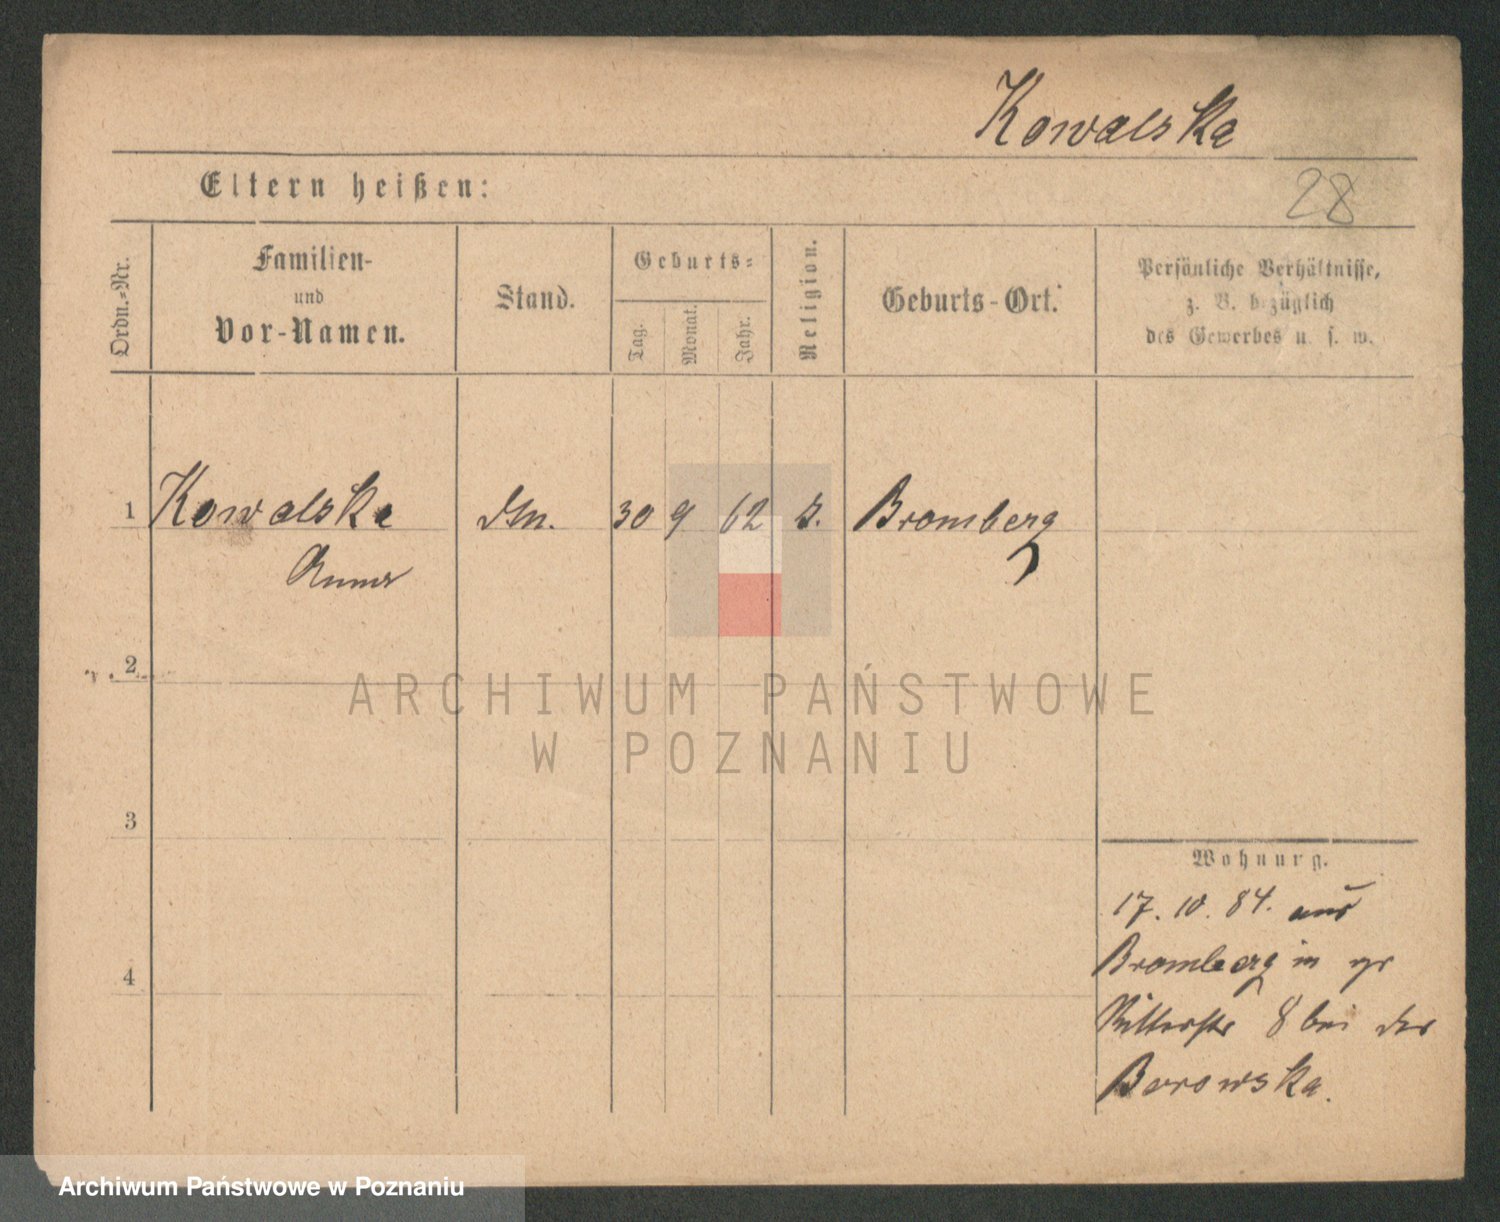 Kowalska
Eltern heißen:
28
Ordn.-Nr.
Familien-
und
Vor-Namen.
Stand.
Geburts-
Tag.
Monat.
Jahr.
Religion.
Geburts-Ort.
Persönliche Verhältnisse,
z. B. bezüglich
des Gewerbes u. s. w.
1 Kowalska 30 9 62 Bromberg
Anna
2
3
4
Wohnung.
17. 10. 84. aus
Bromberg in
Ritterstr 8 bei der
Borowska.
ARCHIWUM PAŃSTWOWE
W POZNANIU
Archiwum Państwowe w Poznaniu